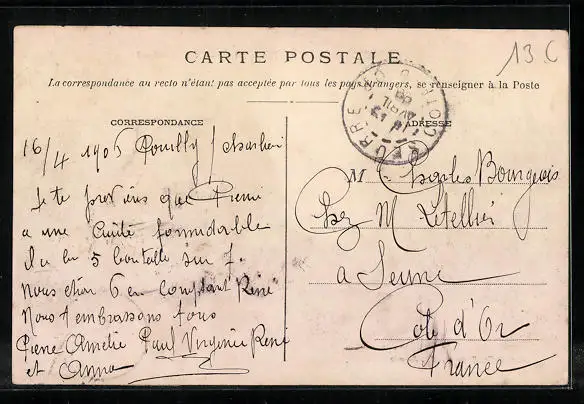 13 C
CARTE POSTALE
La correspondance au recto n'étant pas acceptée par tous les pays étrangers, se renseigner à la Poste
CORRESPONDANCE
ADRESSE
16/4 1905 Pouilly s/ Charlieu
Je te préviens que Pierre
a une cuite formidable
Il a bu 5 bouteille sur 7.
Nous étion 6 en comptant René
Nous t'embrassons tous
Pierre Amélie Paul Virginie René
et Anna
M Charles Bourgeois
Chez M Letellier
a Seurre
Cote d'Or
France
SEURRE
COTE D'OR
AVRIL